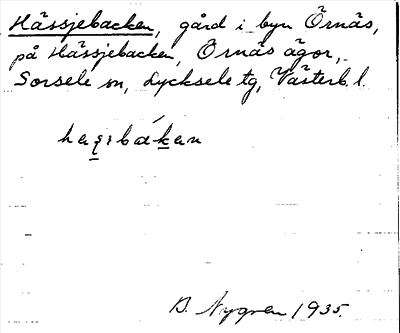 Hässjebacken, gård i byn Örnäs,
på Hässjebacken, Örnäs ägor,
Sorsele sn, Lycksele tg, Västerb. l.
B. Nygren 1935.